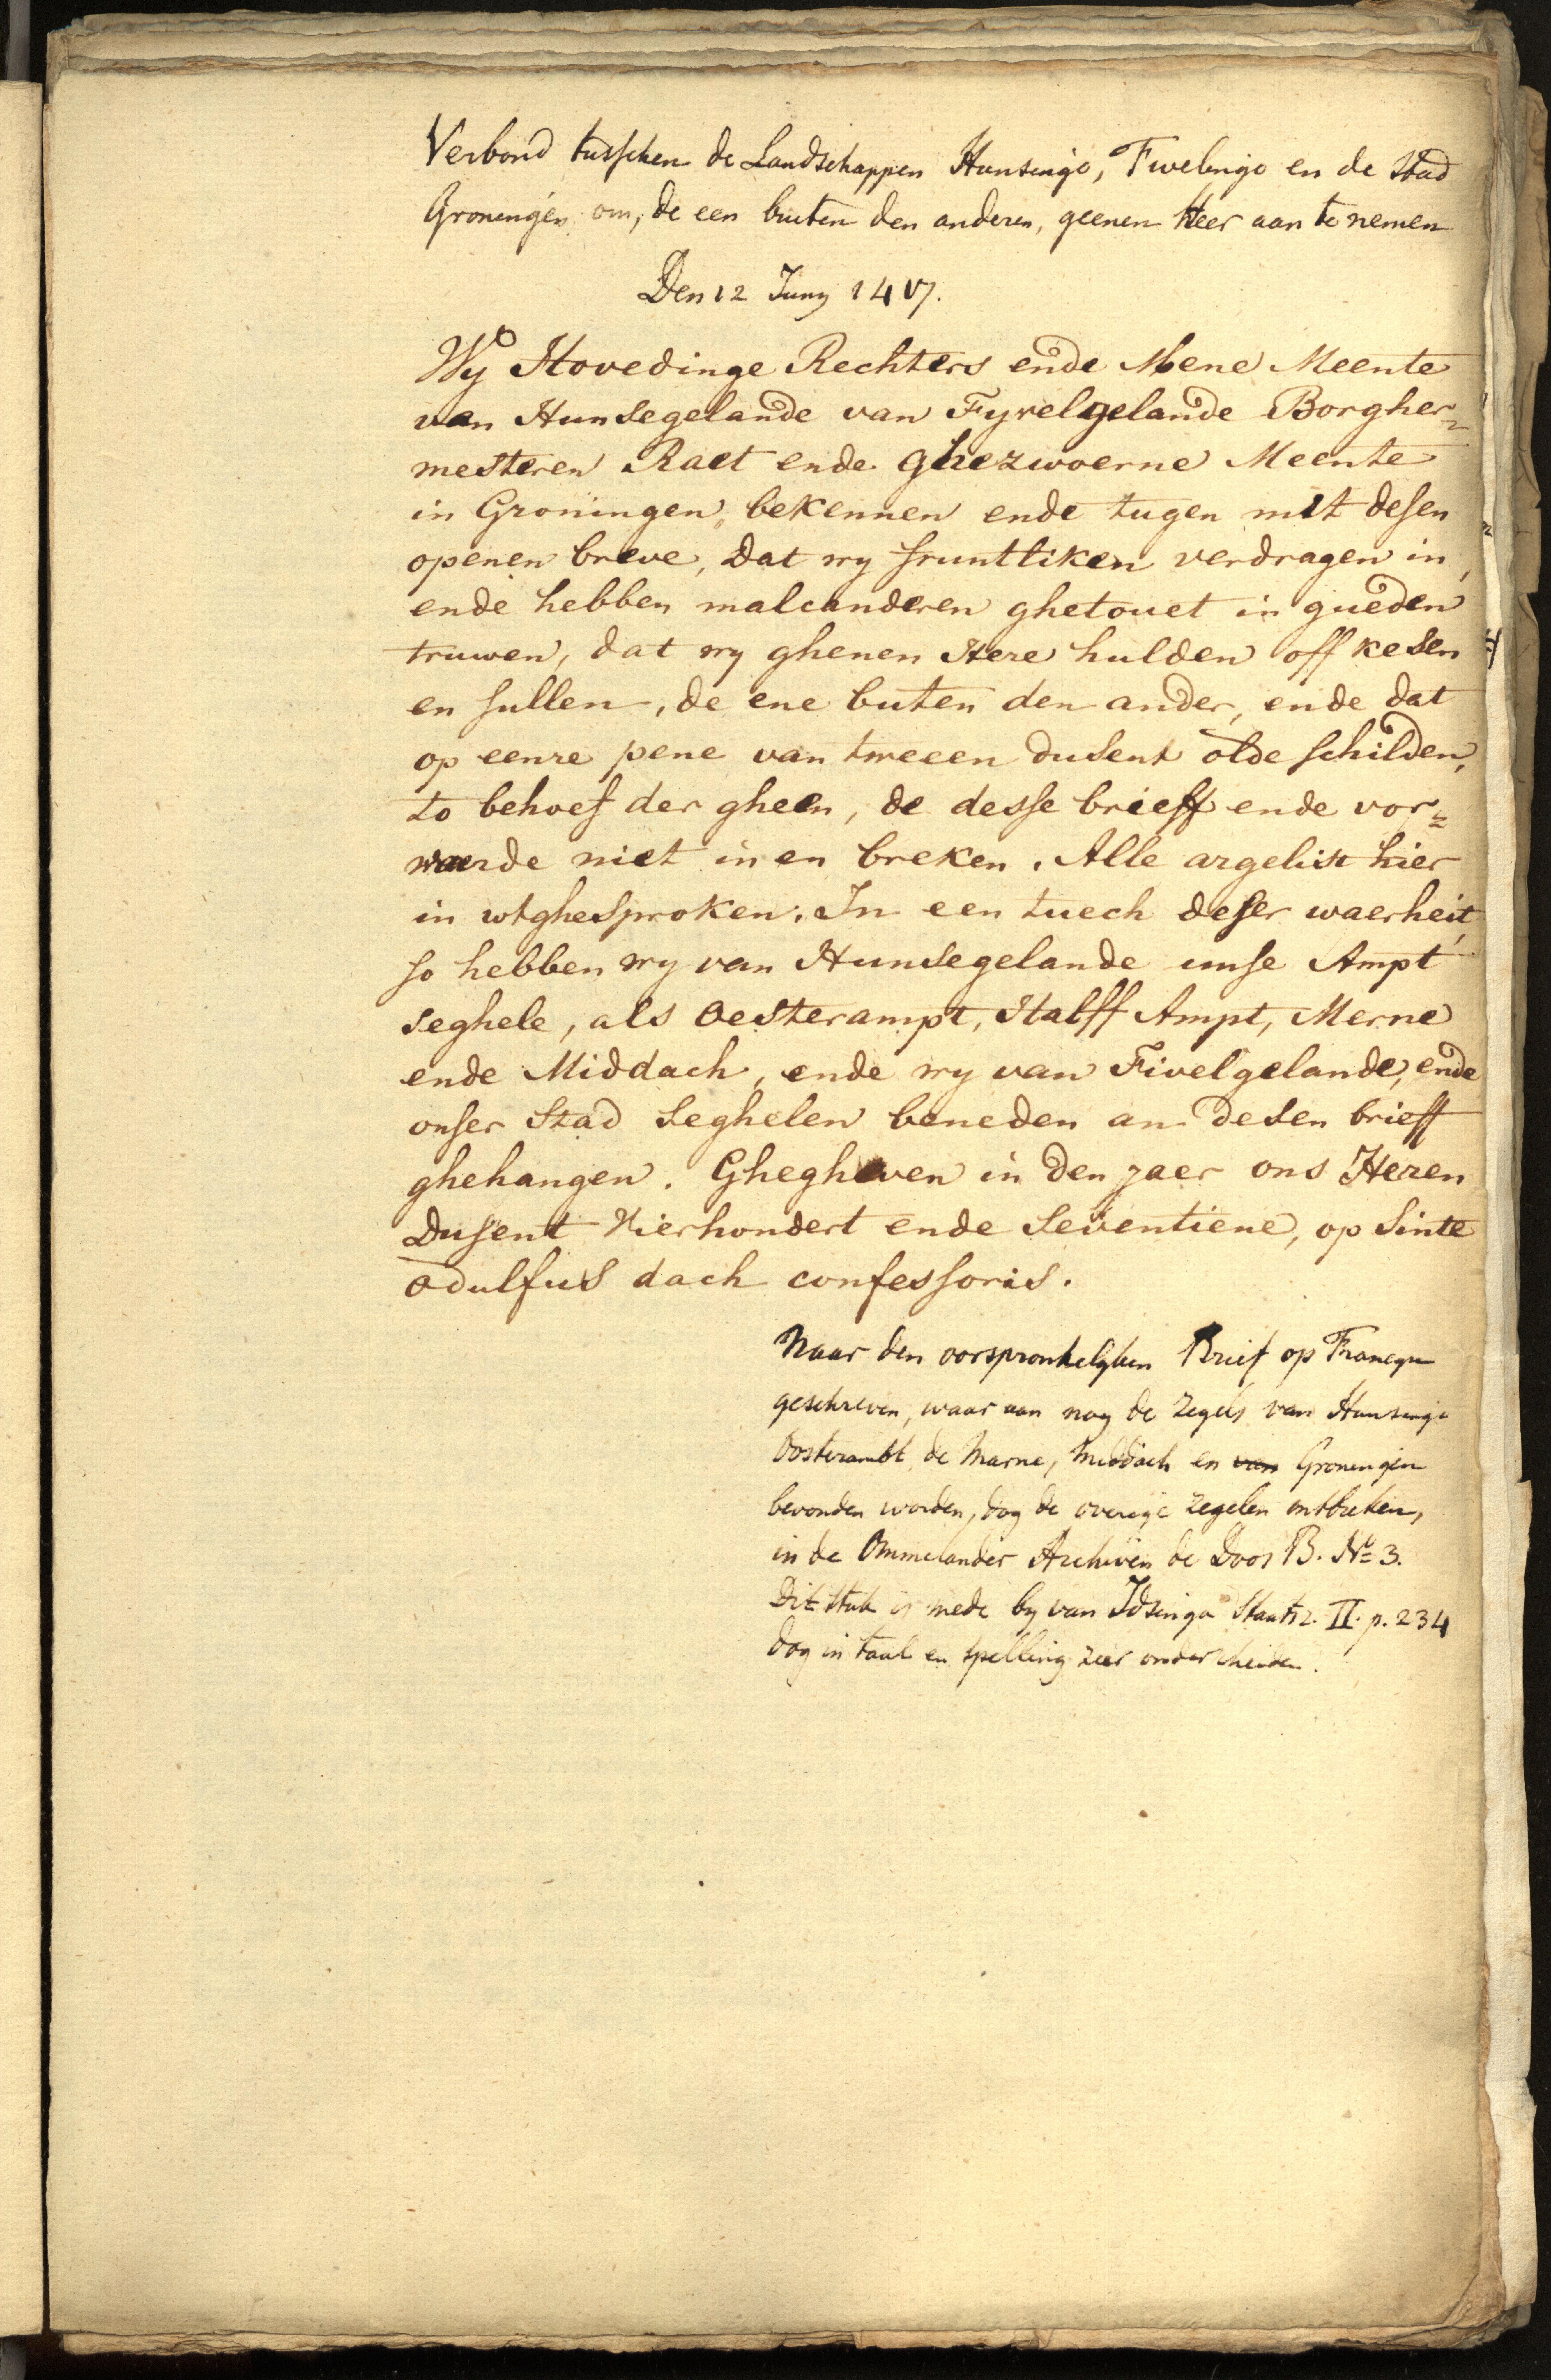 Verbond tusschen de Landschappen Hunsingo, Fivelingo en de Stad
Groningen om, de een buiten den anderen, geenen Heer aan te nemen
Den 12 Juny 1417.
Wy Hovedinge Rechters ende Mene Meente
van Hunsegelande van Fyvelgelande Borgher=
mesteren Raet ende ghezwoerne Meente
in Groningen, bekennen ende tugen mit desen
openen breve, dat wy fruntliken verdragen in,
ende hebben malcanderen ghelouet in gueden
truwen, dat wy ghenen Here hulden off kesen
en sullen, de ene buten den ander, ende dat
op eenre pene van tweeen dusent olde schilden,
to behoef der gheen, de desse brieff ende vor=
waerde niet in en breken. Alle argelist hier
in wtghesproken. In een tuech deser waerheit,
so hebben wy van Hunsegelande unse Ampt
seghele, als Oesterampt, Halff Ampt, Merne
ende Middach, ende wy van Fivelgelande, ende
onser Stad seghelen beneden an desen brieff
ghehangen. Ghegheven in den jaer ons Heren
Dusent Vierhondert ende seventiene, op Sinte
Odulfus dach confessoris.
Naar den oorspronkelyken Brief op Francyn
geschreven, waar aan nog de Zegels van Hunsingo
Oosterambt, de Marne, Middach en van Groningen
bevonden worden, dog de overige zegelen ontbreken,
in de Ommelander Archiven de Doos B. No 3.
Dit stuk is mede by van Idsinga Staatsr. II. p. 234
dog in taal en spelling zeer onderscheiden.